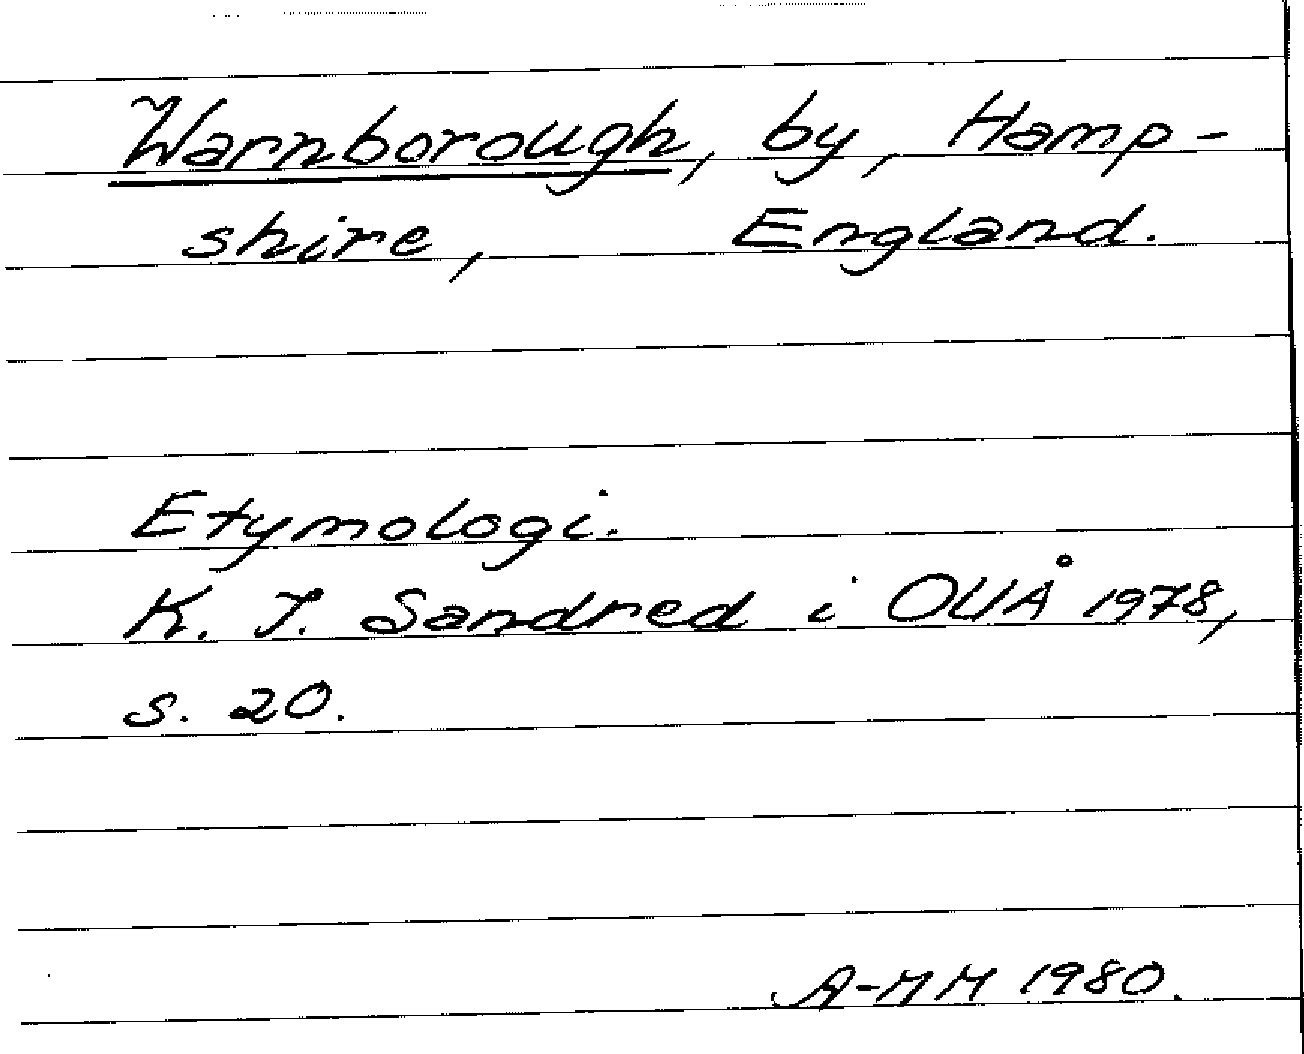 Warnborough, by, Hamp-
shire, England.
Etymologi.
K. I. Sandred i OUÅ 1978,
s. 20.
A-MM 1980.